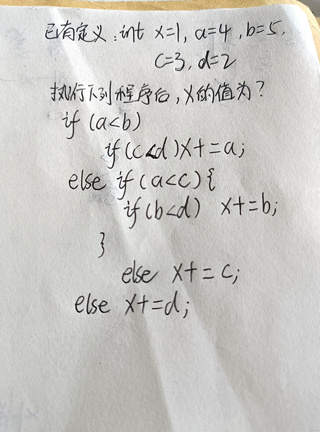 已有定义:int x=1, a=4, b=5,
c=3, d=2
执行下列程序后,x的值为?
if (a<b)
if(c<d)x+=a;
else if(a<c){
if(b<d) x+=b;
}
else x+=c;
else x+=d;